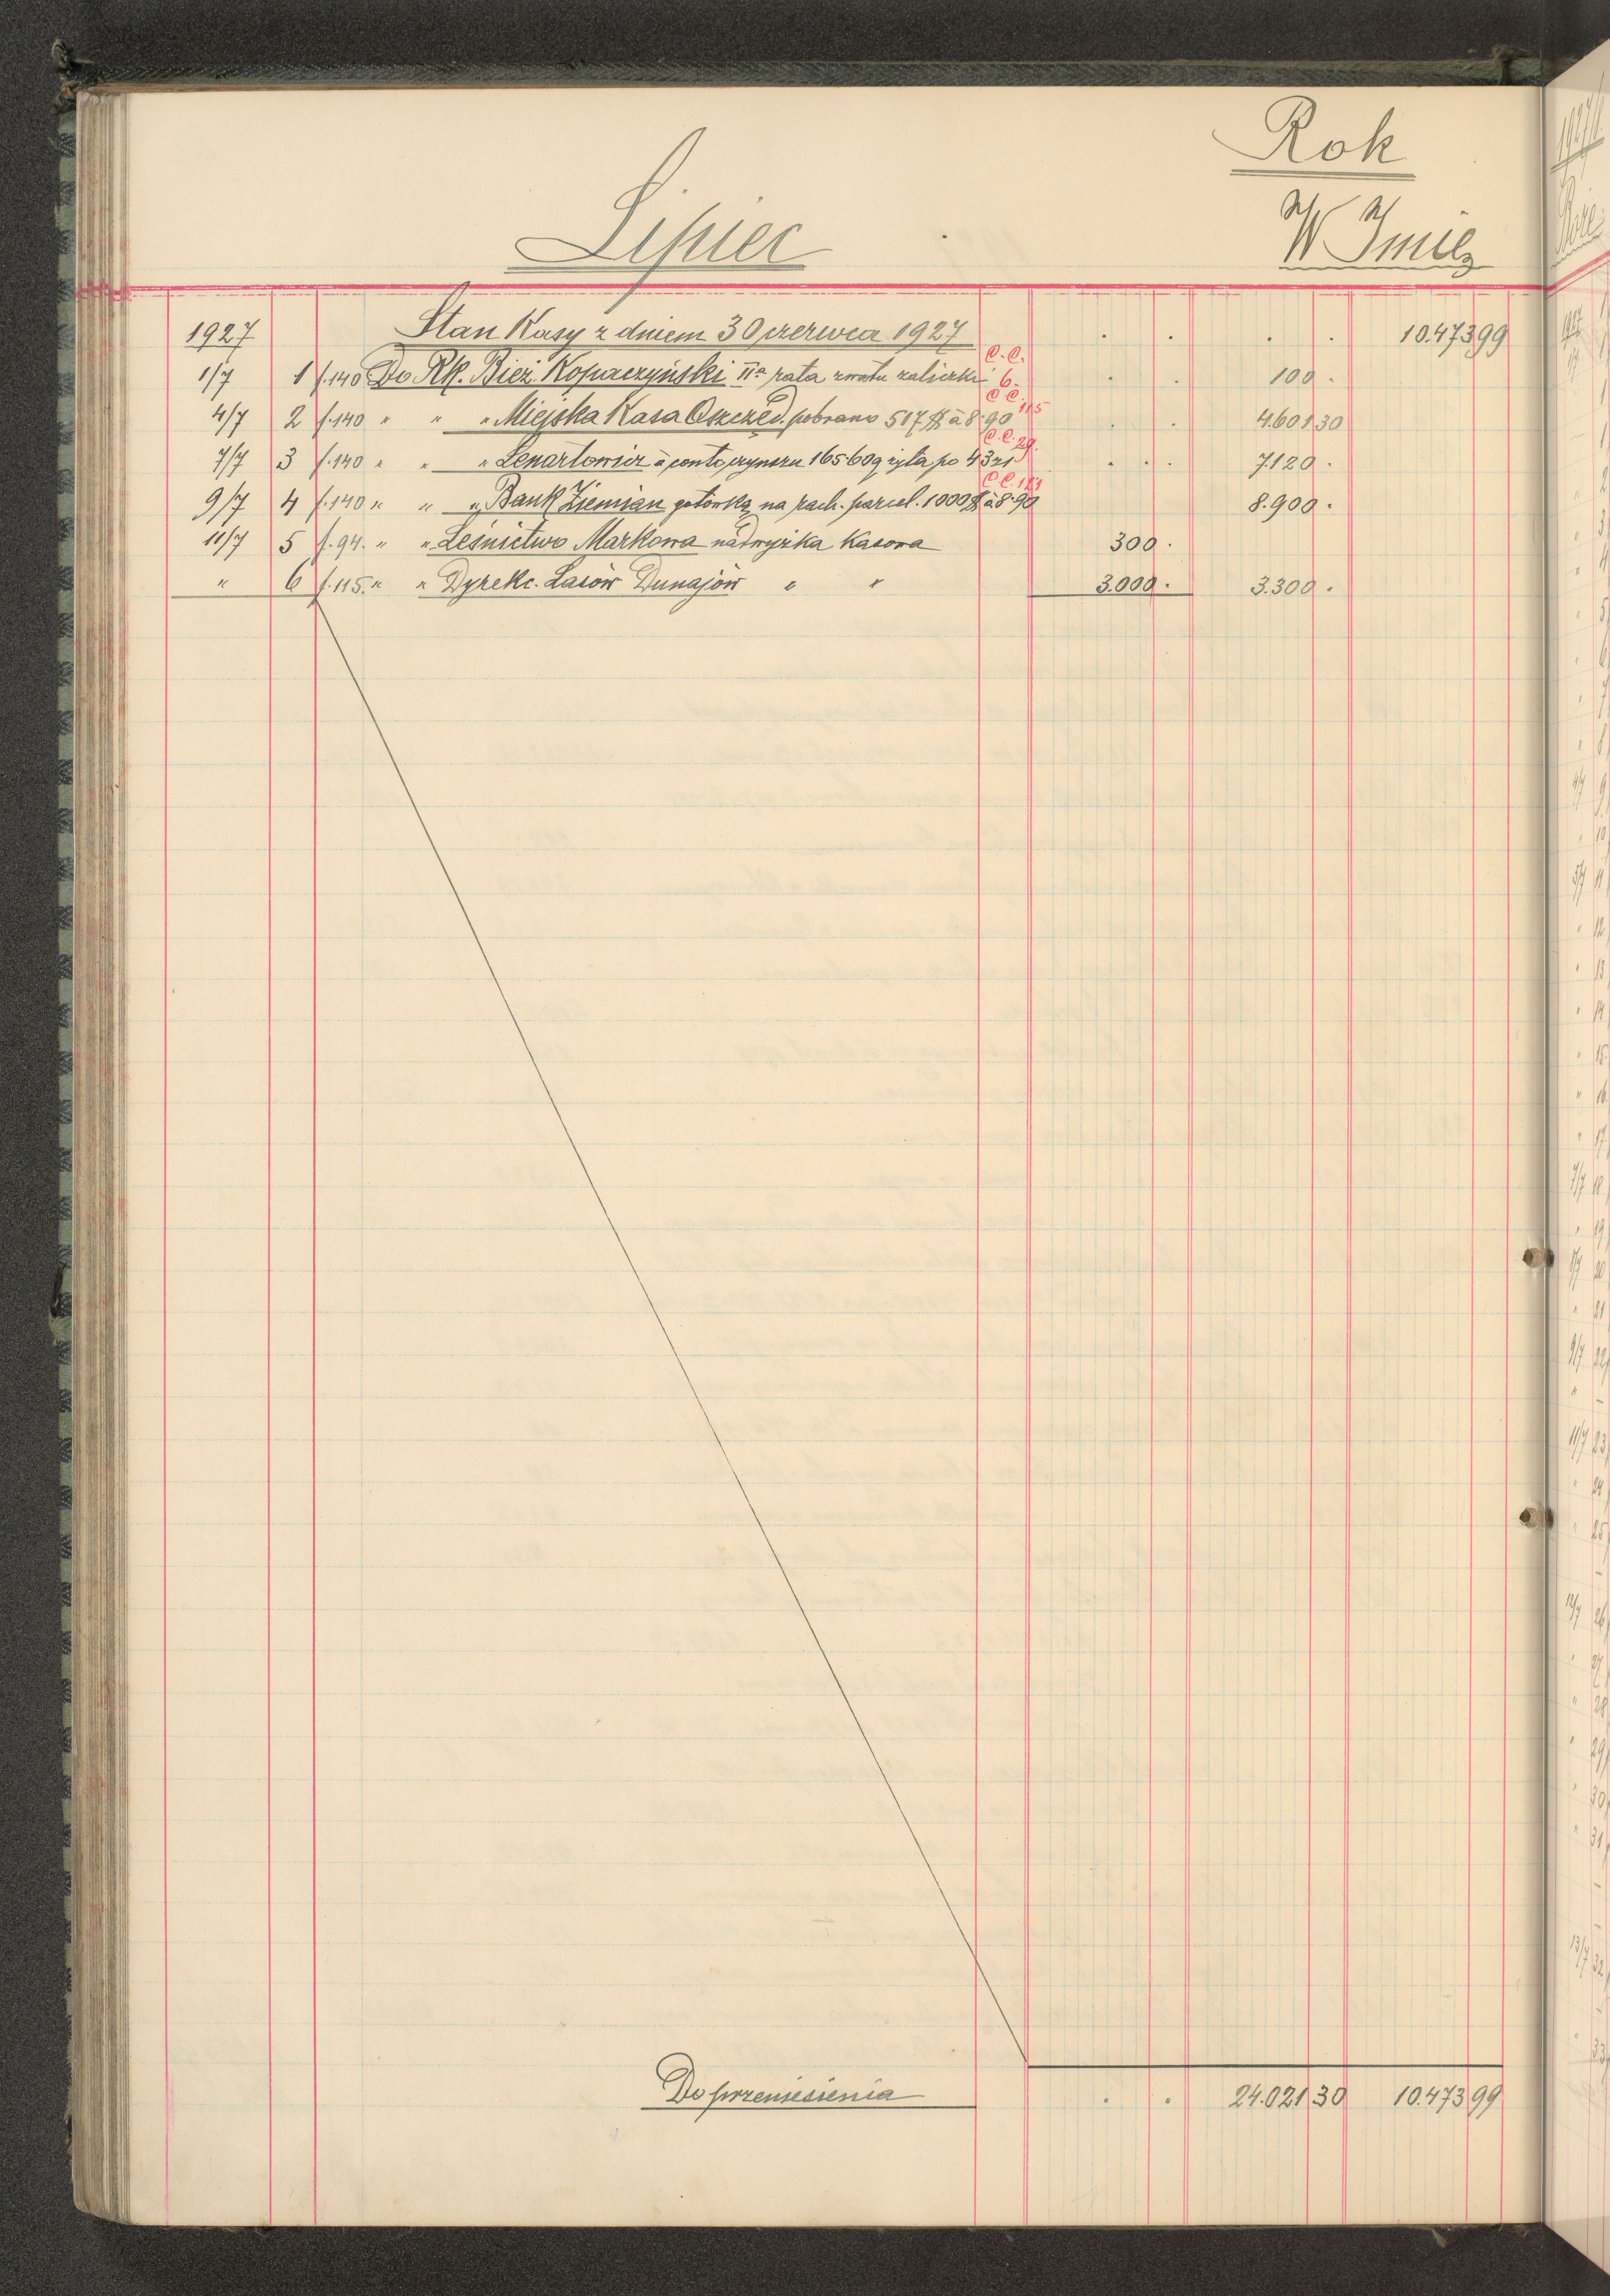 Rok
Lipiec
W Imię
1927 Stan Kasy z dniem 30 czerwca 1927 . . . . 10.473 99
1/7 1 f.140 Do Rk. Bież. Kopaczyński IIa rata zwrotu zaliczki C.C. 6. . . 100 .
4/7 2 f.140 " " " Miejska Kasa Oszczęd. pobrano 517 $ à 8.90 C.C. 115 . . 4.601 30
7/7 3 f.140 " " " Lenartowicz à conto czynszu 165.60q żyta po 43 zł C.C. 29. . . 7.120 .
9/7 4 f.140 " " " Bank Ziemian gotówką na rach. parcel. 1000 $ à 8.90 C.C. 8.900 .
11/7 5 f.94. " " Leśnictwo Markowa nadwyżka Kasowa 300 .
" 6 f.115. " " Dyrekc. Lasów Dunajów " " 3.000 . 3.300 .
Do przeniesienia . . 24.021 30 10.473 99